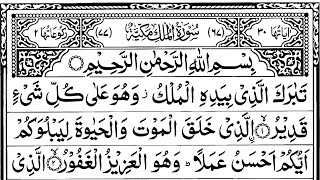 اٰیَاتُهَا ٣٠ (٦٧) سُوْرَةُ الْمُلْكِ مَكِّيَّةٌ (٧٧) رُكُوْعَاتُهَا ٢
بِسْمِ اللّٰهِ الرَّحْمٰنِ الرَّحِيْمِ
تَبٰرَكَ الَّذِیْ بِیَدِهِ الْمُلْكُ ز وَهُوَ عَلٰی كُلِّ شَیْءٍ
قَدِیْرُۨ ۙ﴿١﴾ الَّذِیْ خَلَقَ الْمَوْتَ وَالْحَیٰوةَ لِیَبْلُوَكُمْ
اَیُّكُمْ اَحْسَنُ عَمَلًا ؕ وَهُوَ الْعَزِیْزُ الْغَفُوْرُ ۙ﴿٢﴾ الَّذِیْ